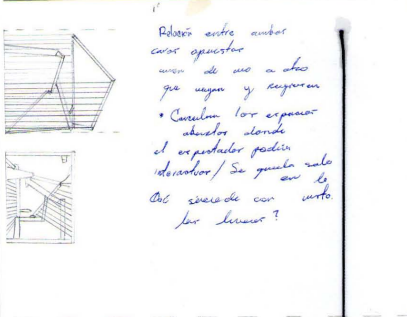 Relación entre ambas
caras opuestas
de uno a otro
que vayan y regresen
* Circular los espacios
abiertos donde
el espectador podría
interactuar / Se queda solo
en lo
Qué sucede con
las líneas?